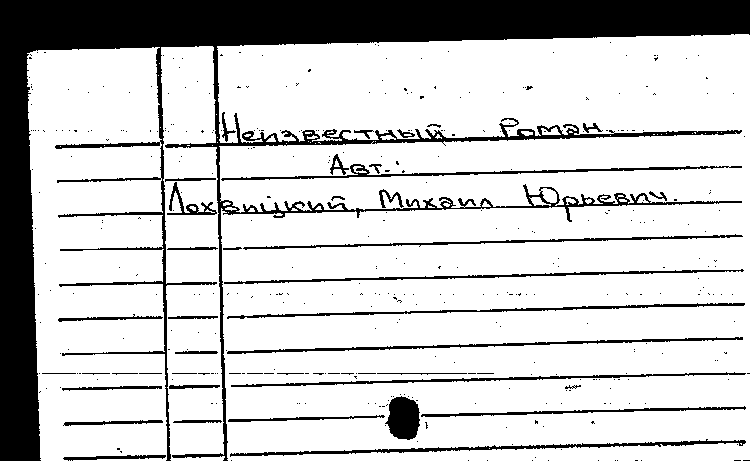 Неизвестный. Роман.
Авт.:
Лохвицкий, Михаил Юрьевич.